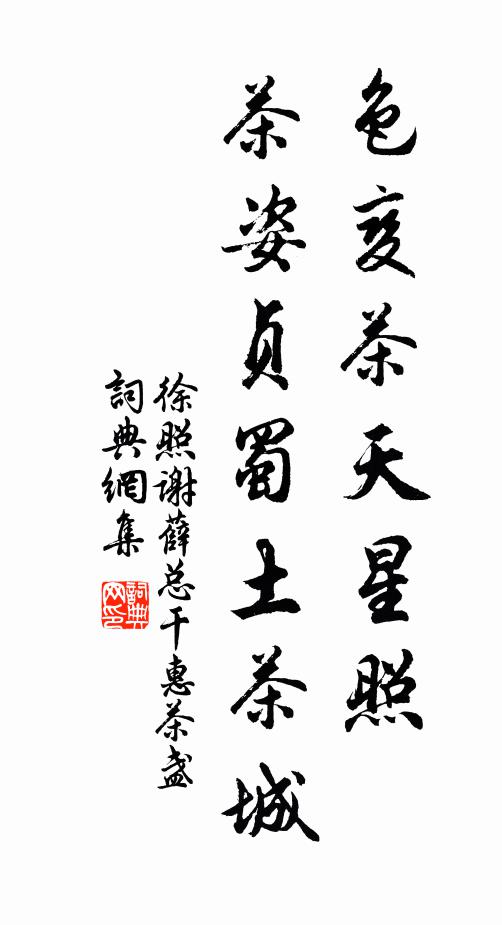 色变茶天星照
茶姿贞蜀土茶城
徐照谢薛总干惠茶盏
詞典網集
詞典网印